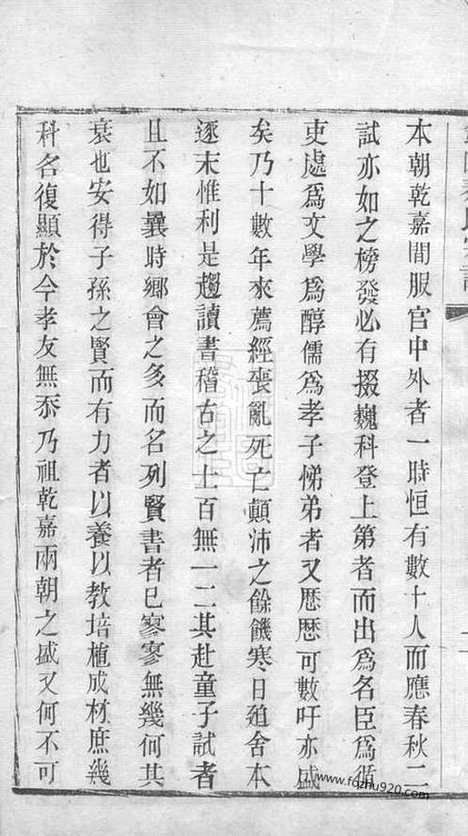 本朝乾嘉間服官中外者一時恒有數十人而應春秋二
試亦如之榜發必有掇巍科登上第者而出爲名臣爲循
吏處爲文學爲醇儒爲孝子悌弟者又厯厯可數吁亦盛
矣乃十數年來薦經喪亂死亡顛沛之餘饑寒日廹舍本
逐末惟利是趨讀書稽古之士百無一二其赴童子試者
且不如曩時鄉會之多而名列賢書者已寥寥無幾何其
衰也安得子孫之賢而有力者以養以教培植成材庶幾
科名復顯於今孝友無忝乃祖乾嘉兩朝之盛又何不可
www.fozhu920.com